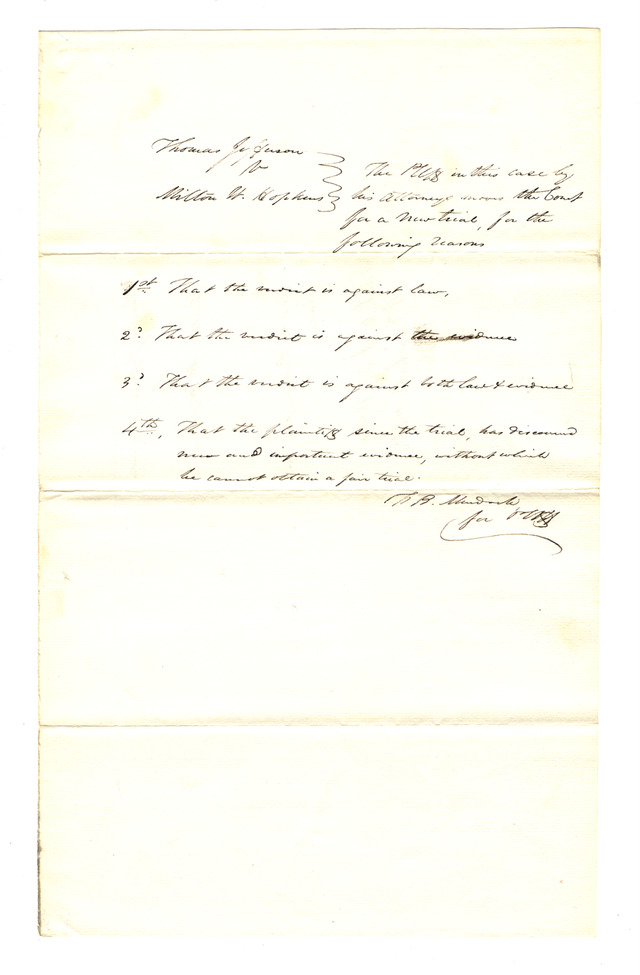 Thomas Jefferson
v
Milton W. Hopkins
The Plff in this case by
his Attorney moves the Court
for a New trial, for the
following reasons
1st. That the verdict is against law,
2d. That the verdict is against the evidence
3d. That the verdict is against both law & evidence
4th, That the plaintiff since the trial, has discovered
new and important evidence, without which
he cannot obtain a fair trial.
B. Murdock
for Plff